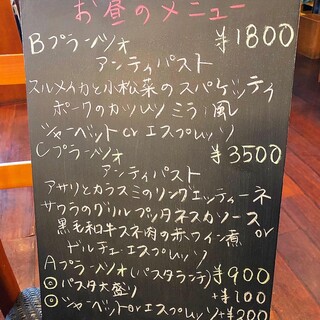 お昼のメニュー
Bプランツォ ¥1800
アンティパスト
スルメイカと小松菜のスパゲッティ
ポークのカツレツミラノ風
シャーベットorエスプレッソ
Cプランツォ ¥3500
アンティパスト
アサリとカラスミのリングエッティーネ
サワラのグリルプッタネスカソース
黒毛和牛スネ肉の赤ワイン煮 or
ドルチェ・エスプレッソ
Aプランツォ(パスタランチ) ¥900
◎パスタ大盛り +¥100
◎シャーベットorエスプレッソ+¥200